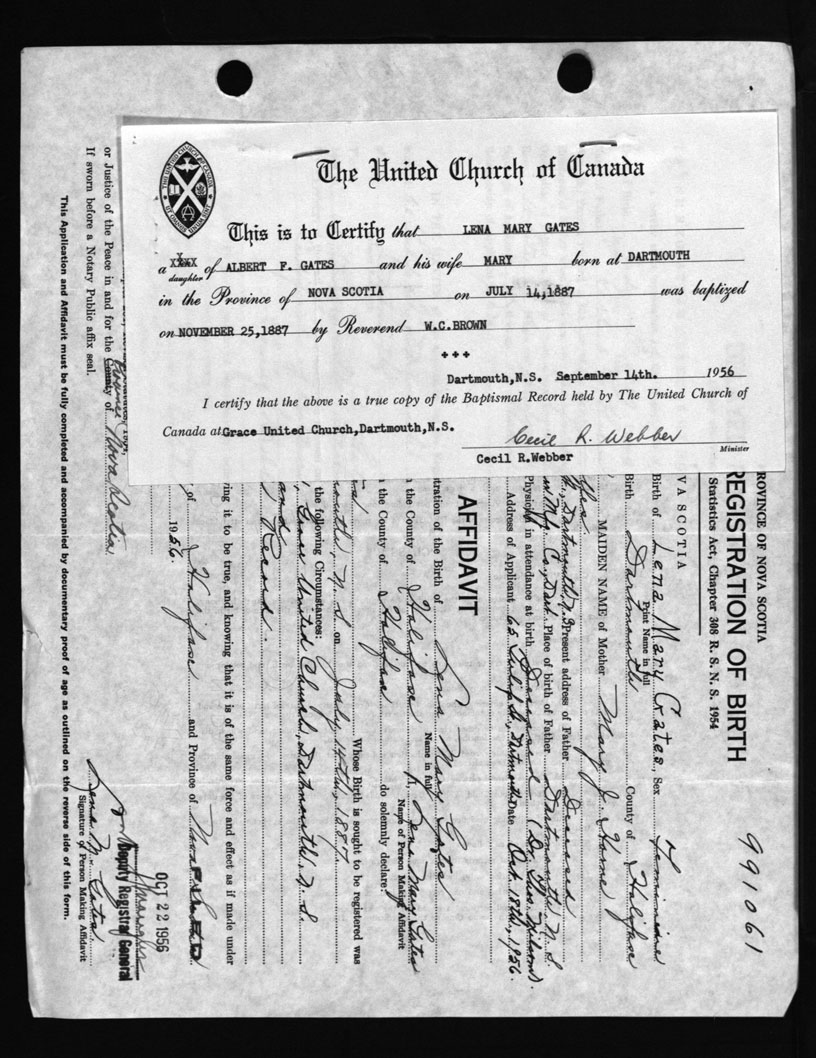 The United Church of Canada
This is to Certify that LENA MARY GATES
a daughter of ALBERT F. GATES and his wife MARY born at DARTMOUTH
in the Province of NOVA SCOTIA on JULY 14,1887 was baptized
on NOVEMBER 25,1887 by Reverend W.C.BROWN
+++
Dartmouth,N.S. September 14th. 1956
I certify that the above is a true copy of the Baptismal Record held by The United Church of
Canada at Grace United Church,Dartmouth,N.S.
Cecil R. Webber
Cecil R.Webber Minister
991061
ROVINCE OF NOVA SCOTIA
REGISTRATION OF BIRTH
Statistics Act, Chapter 308 R. S. N. S. 1954
VA SCOTIA
Birth of Lena Mary Gates, Sex Feminine
Print Name in full
Birth Dartmouth County of Halifax
MAIDEN NAME of Mother Mary J. Horne
Dartmouth N.S Present address of Father Deceased
Co., Dart. Place of birth of Father Dartmouth N. S.
Physician in attendance at birth Deceased
Address of Applicant 65 Dartmouth Date Oct. 18th, 1956.
AFFIDAVIT
tration of the Birth of Lena Mary Gates
Name in full
the County of Halifax I, Lena Mary Gates
Name of Person Making Affidavit
the County of Halifax do solemnly declare:
Whose Birth is sought to be registered was
mouth, N. S. on July 14th, 1887
the following Circumstances:
United Church, Dartmouth N. S.
and
Record.
ving it to be true, and knowing that it is of the same force and effect as if made under
of Halifax and Province of Nova
1956.
FILED
OCT 22 1956
Deputy Registrar General
Lena M. Gates
Signature of Person Making Affidavit
or Justice of the Peace in and for the County of
Province Nova Scotia
If sworn before a Notary Public affix seal.
This Application and Affidavit must be fully completed and accompanied by documentary proof of age as outlined on the reverse side of this form.